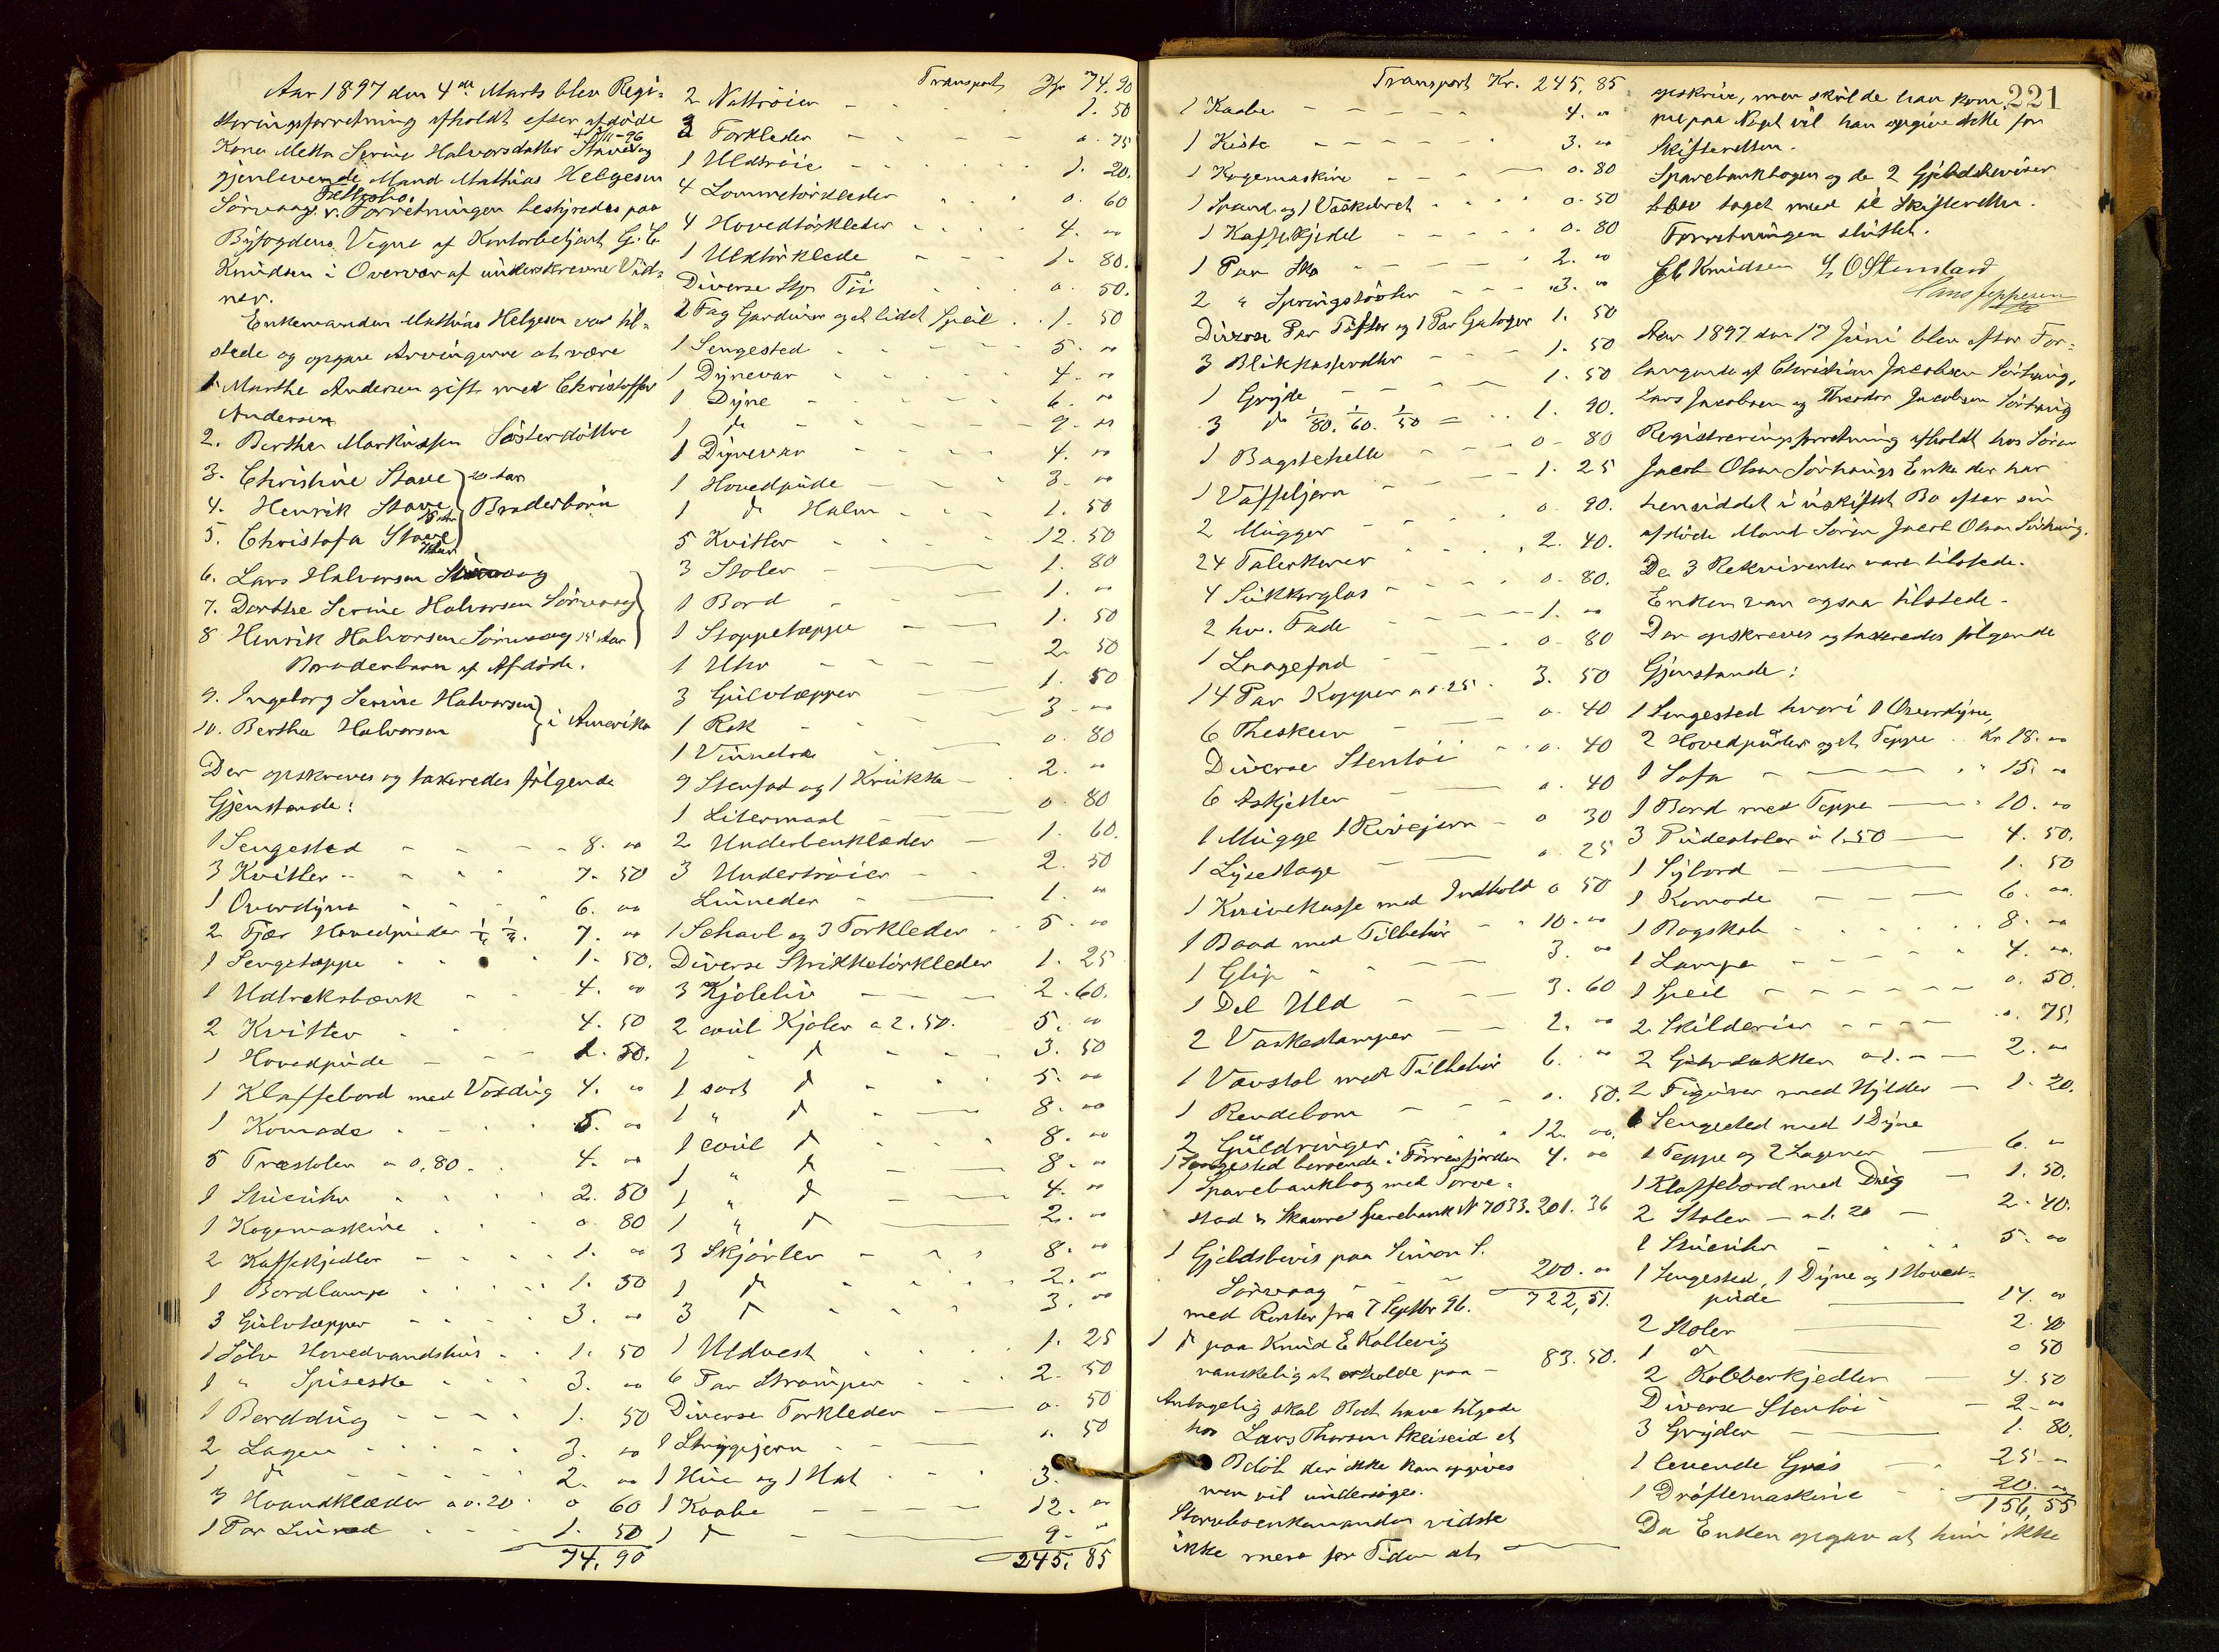 Aar 1897 den 4de Marts blev Regi-
streringsforretning afholdt efter afdöde
+ 5/11-96
Kone Metta Serine Halvorsdatter Stave og
gjenlevende Mand Mathias Helgesen
Fællesbo.
Sörvaag. Forretningen bestyredes paa
Byfogdens Vegne af Kontorbetjent G. C.
Knudsen i Overvær af underskrevne Vid-
ner.
Enkemanden Mathias Helgesen var til-
stede og opgav Arvingerne at være
1. Marthe Andersen gift med Christoffer
Andersen
2. Berthe Markussen Södsterdöttre
3. Christine Stave 20 Aar
4. Henrik Stave Broderbörn
5. Christofa Stave
6. Lars Halvorsen
7. Dorthe Serine Halvorsen Sörvaag
8 Henrik Halvorsen Sörvaag 15 Aar
Broderbarn af Afdöde.
9. Ingeborg Serine Halvorsen
10. Bertha Halvorsen } i Amerika
Der opskreves og taxeredes fölgende
Gjenstande:
1 Sengested - - - 8. 00
3 Kvitler - - - 7. 50
1 Overdyne - - - 6. 00
2 Fjær Hovedpuder 7. 00
1 Sengetæppe - - 1. 50.
1 Udtræksbænk - - 4. 00
2 Kvitler - - 4. 50
1 Hovedpude - - - 1. 50.
1 Klaffebord med Voxdug 4. 00
1 Komode - - - 5. 00
5 Træstoler a 0,80 - 4. 00
1 Stueuhr - - - 2. 50
1 Kogemaskine - - 0. 80
2 Kaffekjedler - - - 1. 00
1 Bordlampe - - - 1. 50
3 Gulvtæpper - - - 3. 00
1 Sölv Hovedvandshus - - 1. 50
1 " Spiseske - - - 3. 00
1 Borddug - - - 1. 50
2 Lagen - - - 3. 00
1 do - - - 2. 00
3 Haandklæder a 0.20 0 60
1 Par - - - 1. 50
74. 90
Transport Kr 74.90
2 Nattröier - - 1. 50
2 Forkleder - - - 0. 75
1 Uldtröie - - - 1. 20.
4 Lommetörkleder - - 0. 60
4 Hovedtörkleder - - - 4. 00
1 Uldtörklede - - - 1. 80.
Diverse Stgr Töi - - 0. 50.
2 Fag Gardiner og et lidet Speil . . 1. 50
1 Sengested - - - 5. 00
1 Dynevar - - - 4. 00
1 Dyne - - - 6. 00
1 do - - - 9. 00
1 Dynevar - - - 4. 00
1 Hovedpude - - - 3. 00
1 do Halm - - - 1. 50
5 Kvitler - - - 12. 50
3 Stoler - - - 1. 80
1 Bord - - - 1. 00
1 Stoppetæppe - - - 1. 50
1 Uhr - - - 2. 50
3 Gulvtæpper - - 1. 50
1 Rok - - - 3. 00
1 - - - 0. 80
9 Stenfad og 1 Krukke - 2. 00
1 Litermaal - - 0. 80
2 Underbenklæder - 1. 60.
3 Undertröier - - 2. 50
- - 1. 00
1 Schavl og 3 Forkleder - 5. 00
Diverse Strikketörkleder 1. 25
3 Kjoleliv - - 2. 60.
2 coul Kjoler a 2.50. 5. 00
1 " do - - - 3. 50
1 sort do - - 5. 00
1 " do - - 8. 00
1 coul do - - 8. 00
1 " do - - 8. 00
1 " do - - 4. 00
1 " do - - 2. 00
3 Skjörter - - - 8. 00
1 do - - - 2. 00
3 do - - - 3. 00
1 Uldvest - - - 1. 25
6 Par Strömper - - - 2. 50
Diverse Forkleder - - 0. 50
1 Strygejern - - - 0. 50
1 Hue og 1 Hat - - - 3.
1 Kaabe - - - 12. 00
1 do - - - 9. 00
245. 85
Transport Kr. 245, 85
1 Kaabe - - - 4. 00
1 Kiste - - - 3. 00
1 Kogemaskine - - - 0. 80
1 Spand og 1 Vaskebret - - 0. 50
1 Kaffekjedel - - - 0. 80
1 Par Sko - - - 2. 00
2 " Springstövler - - - 3. 00
Diverse Par Töfler og 1 Par Galoger 1. 50
3 Blikkasseroller - - - 1. 50
1 Gryde - - - 1. 50
3 do 1/80. 1/60. 1/50 = - - 1. 90.
1 Bagstehelle - - - 0 - 80
1 Vaffeljern - - - 1. 25
2 Mugger - - - 0. 90.
24 Talerkener - - - 2. 40.
4 Sukkerglas - - - 0. 80.
2 hv. Fade - - - 1. 00
1 Laagefad - - - 0. 80
14 Par Kopper a 0.25 - 3. 50
6 Theskeer - - - 0. 40
Diverse Stentöi - - 0. 40
6 Askjetter - - 0. 40
1 Mugge 1 Rivejern - 0 30
1 Lysestage - - 0. 25
1 Knivekasse med Indhold 0 50
1 Baad med Tilbehör - - 10. 00
1 Glip - - - 3. 00
1 Del Uld - - - 3. 60
2 Vaskestamper - - 2. 00
1 Vævstol med Tilbehör 6. 00
1 Rendebom - - - 0. 50.
2 Guldringer - - 12. 00.
1 Sengested beroende i Förresfjorden 4. 00
1 Sparebankbog med Torve-
stad & Skaare Sparebank No 7033. 201. 36
1 Gjeldsbevis paa Simon S.
Sörvaag - - - 200. 00
med Renter fra 7 Septbr 96. 722, 51.
1 do paa Knud E Kallevig
vanskelig at erholde paa - 83. 50.
Antagelig skal Boet have tilgode
hos Lars Thorsen Skeiseid et
Belöb der ikke kan opgives
men vil undersöges.
Stervboenkemanden vidste
ikke mere for Tiden at
opskrive, men skulde han kom-
221
me paa Noget vil han opgive dette for
Skifteretten.
Sparebankbogen og de 2 Gjeldsbeviser
blev taget med til Skifteretten.
Forretningen sluttet.
G C Knudsen O Stensland
Hans Jeppesen
Aar 1897 den 17 Juni blev efter For-
langende af Christian Jacobsen Sörhaug,
Lars Jacobsen og Theodor Jacobsen Sörhaug
Registreringsforretning afholdt hos Sören
Jacob Olsen Sörhaugs Enke der har
hensiddet i uskiftet Bo efter sin
afdöde Mand Sören Jacob Olsen Sörhaug.
De 3 Rekvirenter vare tilstede.
Enken var ogsaa tilstede -
Der opskreves og taxeredes fölgende
Gjenstande:
1 Sengested hvori 1 Overdyne,
2 Hovedpuder og et Teppe - Kr 18. 00
1 Sofa - - - " 15. 00
1 Bord med Teppe - - " 10. 00
3 Pudestoler a 1.50 - 4. 50.
1 Sybord - - - 1. 50
1 Komode - - - 6. 00.
1 Bogskab - - - 8. 00
1 Lampe - - - 4. 00.
1 Speil - - - 0. 50.
2 Skilderier - - - 0. 75.
2 a 1. - - 2. 00
2 Figurer med Hylder - 1. 20.
1 Sengested med 1 Dyne
1 Teppe og 2 Lagener - 6. 00
1 Klaffebord med Dug - 1. 50.
2 Stoler - a 1. 20 - 2. 40.
1 Stueuhr - - - 5. 00
1 Sengested, 1 Dyne og 1 Hoved-
pude - 14. 00
2 Stoler - 2. 40
1 do - 0 50
2 Kobberkjedler - 4. 50
Diverse Stentöi - 2. 00
3 Gryder - 1. 80.
1 levende Gris - 25. 00
1 Dröftemaskine - 20. 00
156, 55
Da Enken opgav at hun ikke